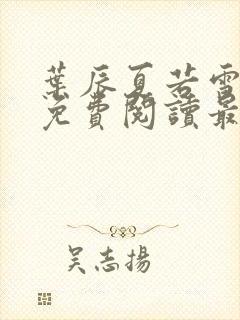 葉辰夏若雪
免費閱讀最
吴志揚